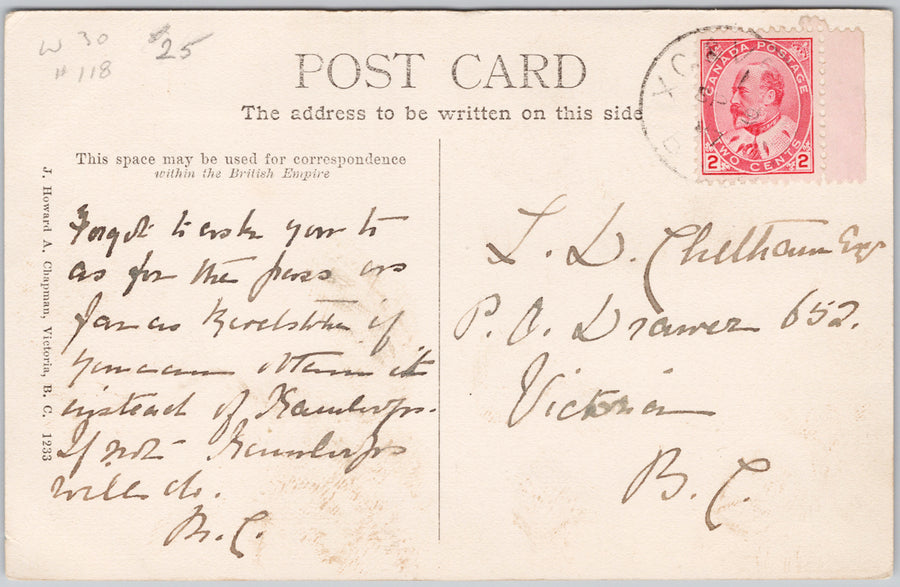 W 30
# 118
$25
POST CARD
The address to be written on this side
CANADA POSTAGE
2 TWO CENTS 2
This space may be used for correspondence
within the British Empire
J. Howard A. Chapman, Victoria, B. C. 1233
Forgot to ask you to
as for the pass as
far as Revelstoke if
you can obtain it
instead of Kamloops.
If not Kamloops
will do.
M.C.
L. D. Chetham Esq
P. O. Drawer 652.
Victoria
B. C.